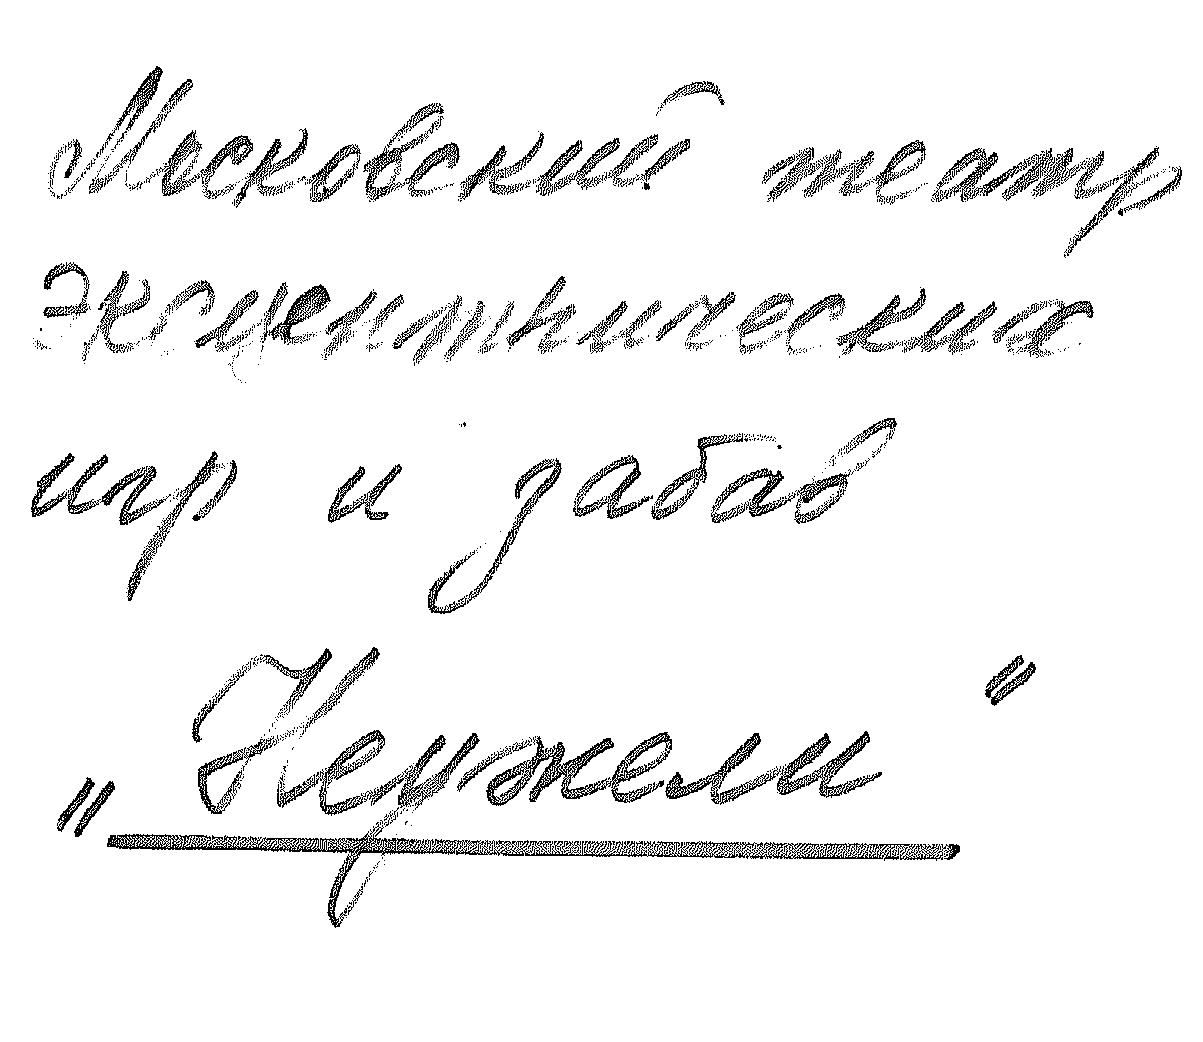 Московский театр
эксцентрических
игр и забав
„Неужели"